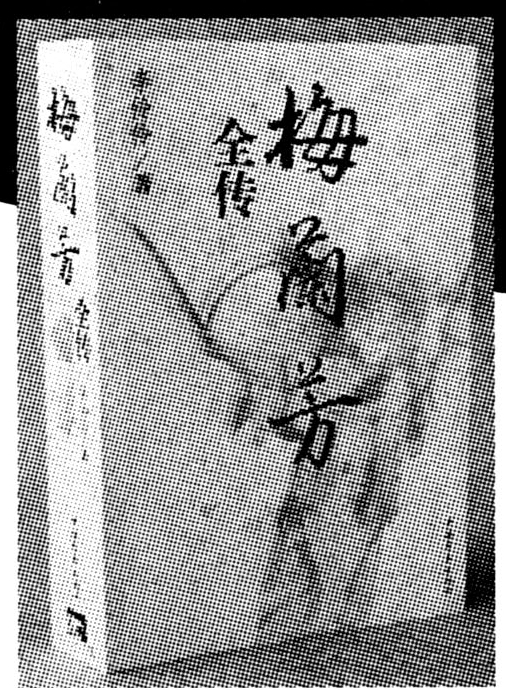 梅蘭芳
全传
李伶伶/著
梅蘭芳
全传